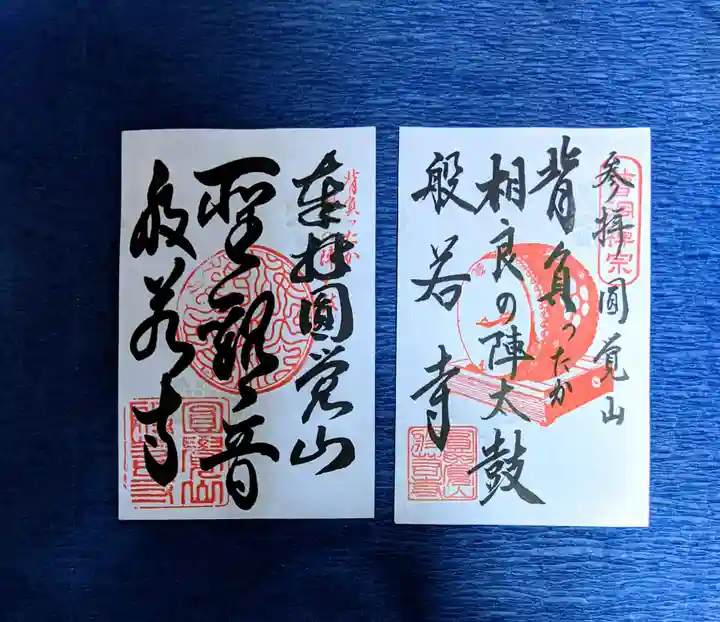 奉拝 圓覚山
背負ったか
聖観音
般若寺
参拝 圓覚山
曹洞禅宗
背負ったか
相良の陣太鼓
般若寺